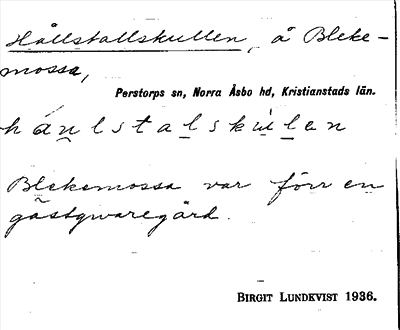 Hållstallskullen, å Bleke-
mossa,
Perstorps sn, Norra Åsbo hd, Kristianstads län.
Blekemossa var förr en
gästgivaregård.
BIRGIT LUNDKVIST 1936.